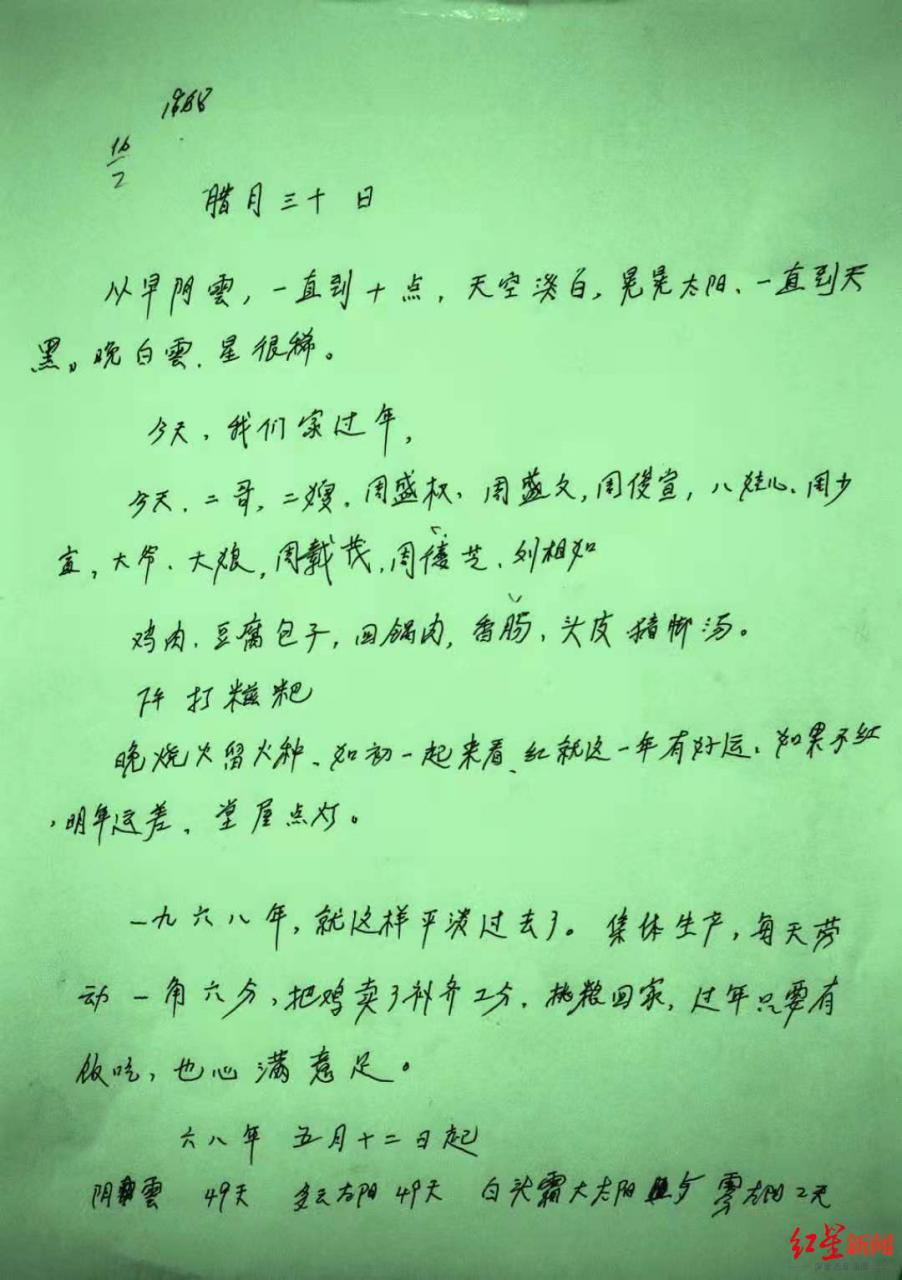 1968
16/2
腊月三十日
从早阴雲，一直到十点，天空淡白，晃晃太阳、一直到天
黑。晚白雲．星很稀。
今天，我们家过年，
今天．二哥，二嫂．周盛权、周盛文，周俊宣，八娃心、周少
宣，大爷、大娘，周载茂，周俊芝、刘相如
鸡肉、豆腐包子，回锅肉，香肠、头皮 猪脚汤。
下午 打糍粑
晚烧火留火种、如初一起来看、红就这一年有好运、如果不红
，明年运差、堂屋点灯。
一九六八年，就这样平淡过去了。集体生产，每天劳
动一角六分，把鸡卖了补齐工分．挑粮回家，过年只要有
饭吃，也心满意足。
六八年 五月十二日起
阴雲 49天 多云太阳49天 白头霜大太阳 太阳2天
红星新闻